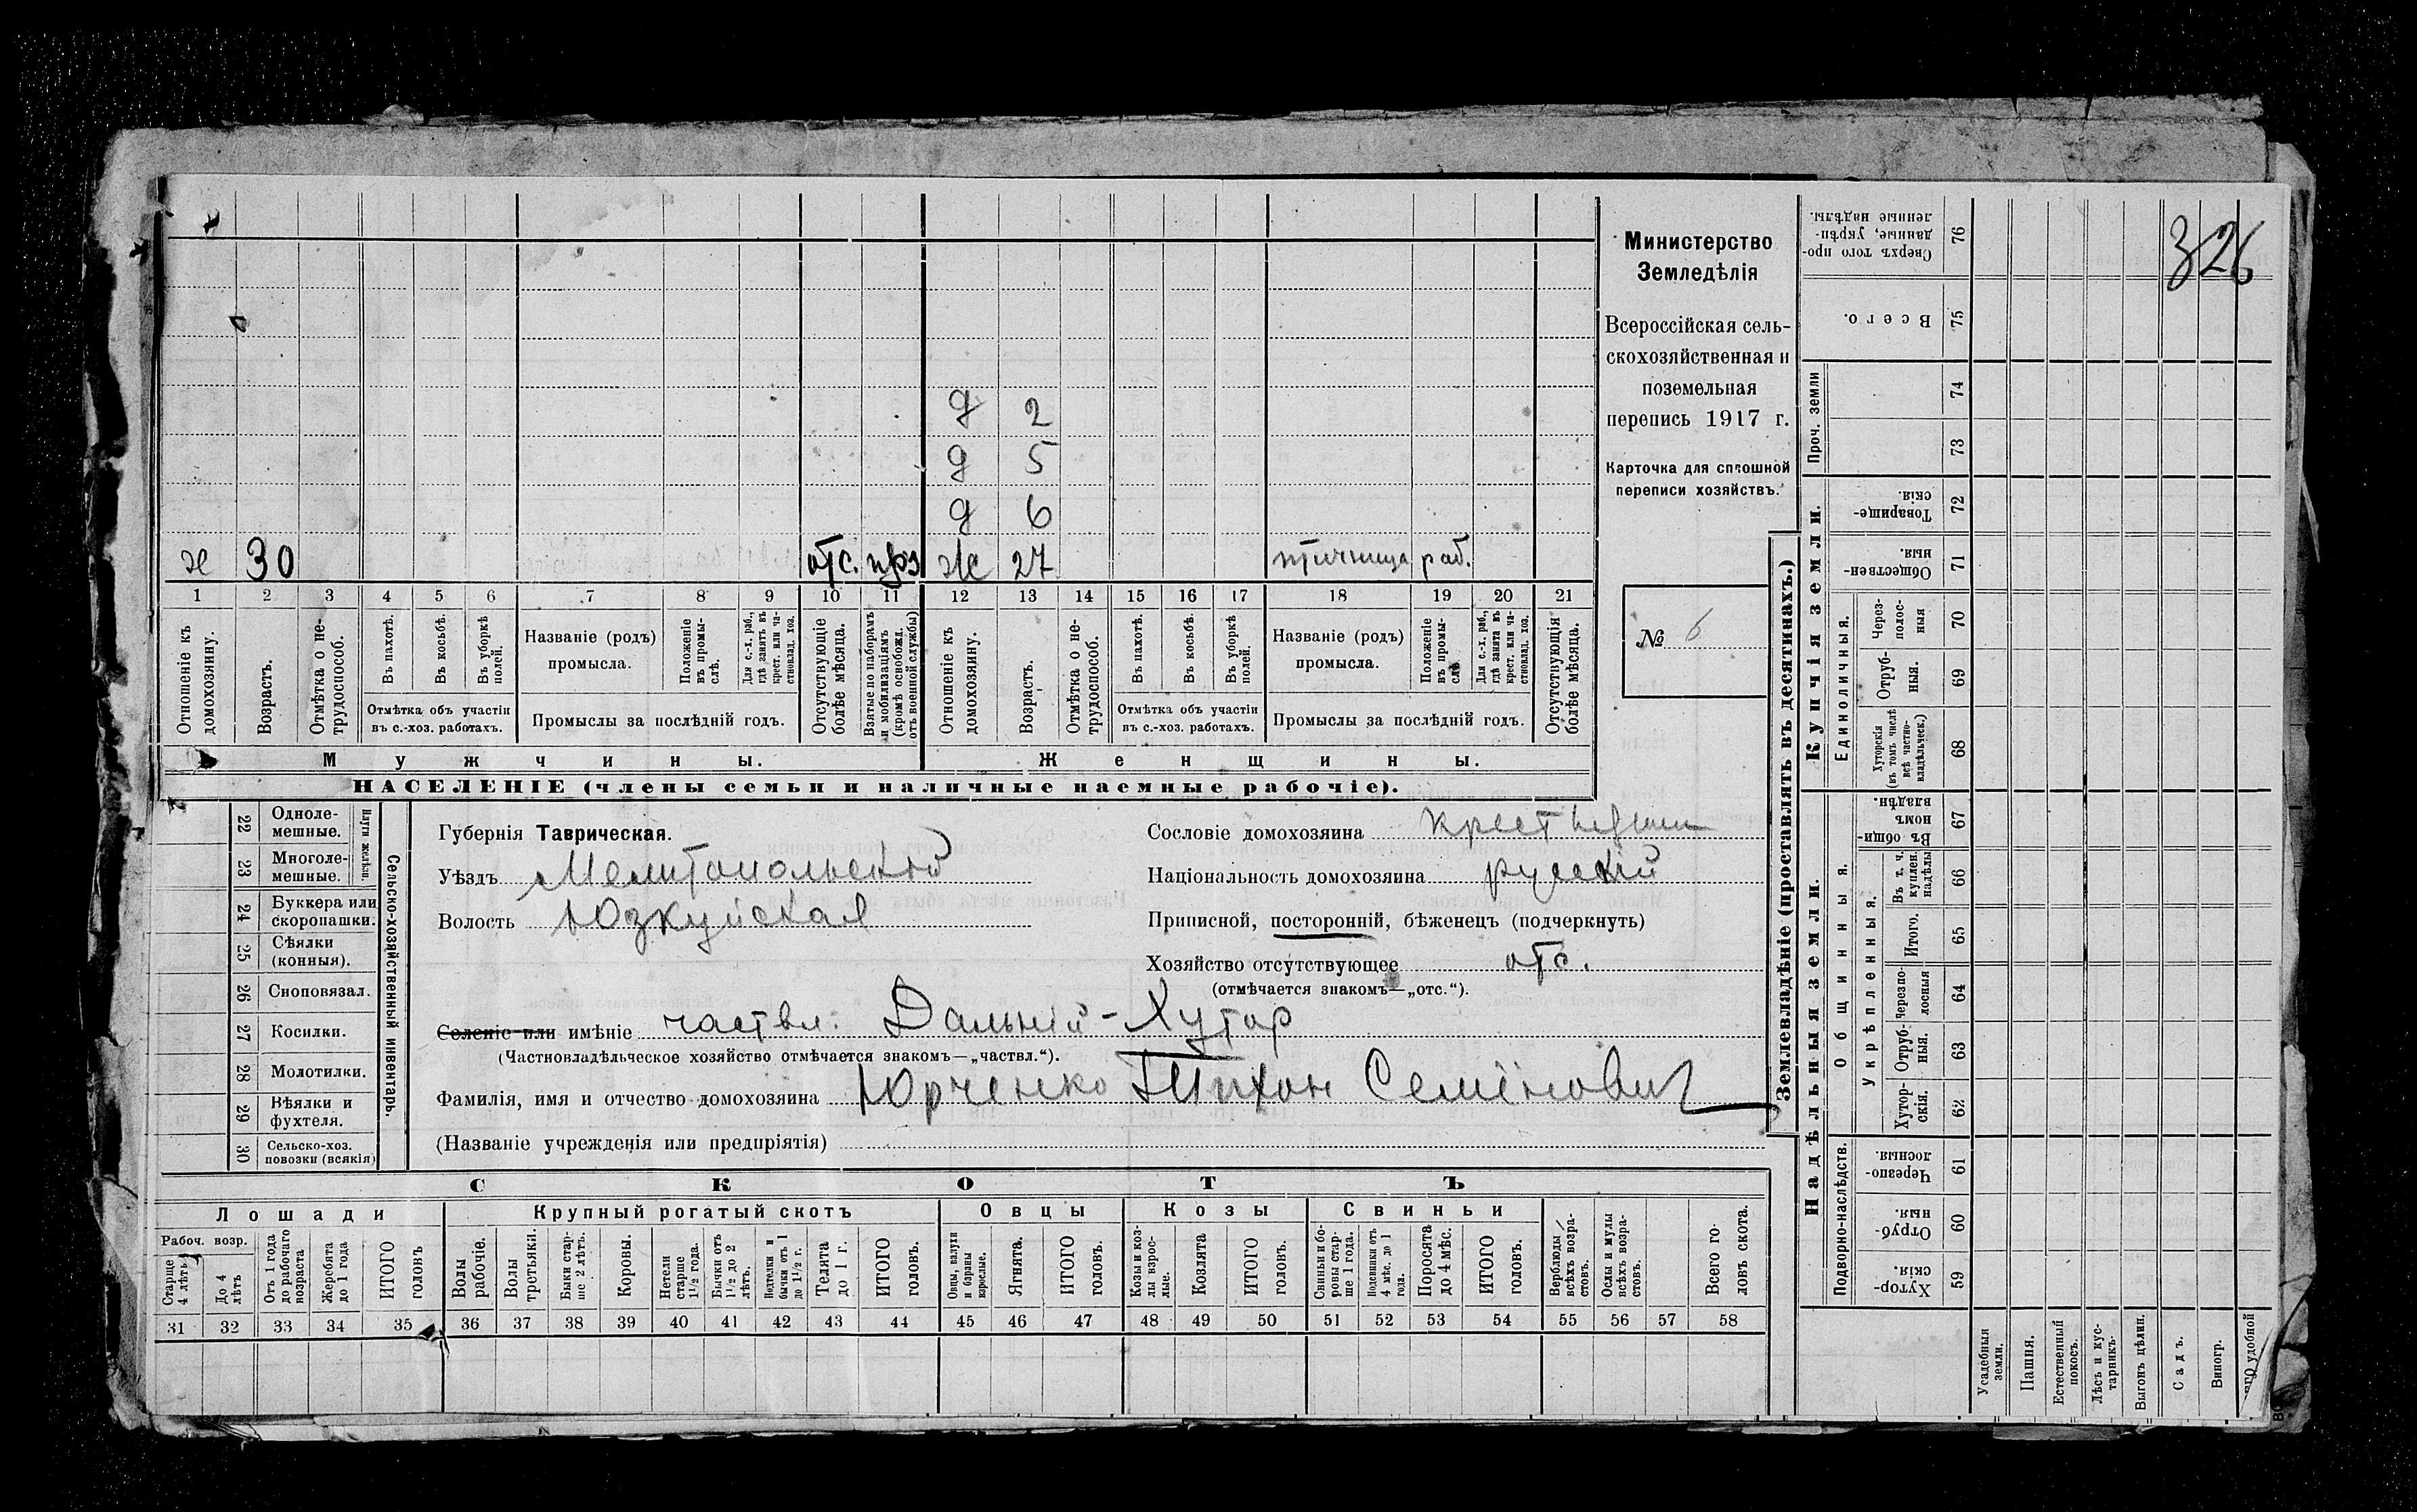 326
Министерство
Земледѣлія
Всероссійская сель-
скохозяйственная и
поземельная
перепись 1917 г.
Карточка для сплошной
переписи хозяйствъ.
№ 6
д 2
д 5
д 6
х 30 отс. ж 27 птичница раб.
1 2 3 4 5 6 7 8 9 10 11 12 13 14 15 16 17 18 19 20 21
Отношеніе къ домохозяину.
Возрастъ.
Отмѣтка о не-
трудоспособ.
Въ пахотѣ.
Въ косьбѣ.
Въ уборкѣ полей.
Отмѣтка объ участіи
въ с.-хоз. работахъ.
Названіе (родъ)
промысла.
Положеніе
въ промы-
слѣ.
Для с.-х. раб.,
гдѣ занятъ въ
крест. или ча-
стновлад. хоз.
Промыслы за послѣдній годъ.
Отсутствующіе
болѣе мѣсяца.
Взятые по наборамъ
и мобилизаціямъ
(кромѣ освобожд.
отъ военной службы)
Отношеніе къ
домохозяину.
Возрастъ.
Отмѣтка о не-
трудоспособ.
Въ пахотѣ.
Въ косьбѣ.
Въ уборкѣ
полей.
Отмѣтка объ участіи
въ с.-хоз. работахъ.
Названіе (родъ)
промысла.
Положеніе
въ промы-
слѣ
Для с.-х. раб.,
гдѣ занята въ
крест. или ча-
стновлад. хоз.
Промыслы за послѣдній годъ.
Отсутствующія
болѣе мѣсяца.
Мужчины.
Женщины.
НАСЕЛЕНІЕ (члены семьи и наличные наемные рабочіе).
22 Одноле-
мешные.
23 Многоле-
мешные.
Плуги желѣзн.
24 Буккера или
скоропашки.
25 Сѣялки
(конныя).
26 Сноповязал.
27 Косилки.
28 Молотилки.
29 Вѣялки и
фухтеля.
30 Сельско-хоз.
повозки (всякія)
Сельско-хозяйственный инвентарь.
Губернія Таврическая.
Уѣздъ Мелитопольскій
Волость Юзкуйская
Сословіе домохозяина
Національность домохозяина русскій
Приписной, посторонній, бѣженецъ (подчеркнуть)
Хозяйство отсутствующее отс.
(отмѣчается знакомъ—„отс.“).
Селеніе или имѣніе частвл. Дальній-Хутор
(Частновладѣльческое хозяйство отмѣчается знакомъ—„частвл.“).
Фамилія, имя и отчество домохозяина Юрченко Тихон Семёнович
(Названіе учрежденія или предпріятія)
СКОТЪ
Лошади
Крупный рогатый скотъ
Овцы
Козы
Свиньи
Рабоч. возр.
Старше
4 лѣтъ
До 4
лѣтъ
Отъ 1 года
до рабочаго
возраста
Жеребята
до 1 года
ИТОГО
головъ
Волы
рабочіе.
Волы
третьяки.
Быки стар-
ше 2 лѣтъ.
Коровы.
Нетели
старше
1½ года.
Бычки отъ
1½ до 2
лѣтъ.
Подтелки и
бычки отъ 1
до 1½ г.
Телята
до 1 г.
ИТОГО
головъ.
Овцы, валухи
и бараны
взрослые.
Ягнята.
ИТОГО
головъ.
Козы и коз-
лы взрос-
лые.
Козлята
ИТОГО
головъ.
Свиньи и бо-
ровы стар-
ше 1 года.
Подсвинки отъ
4 мѣс. до 1
года.
Поросята
до 4 мѣс.
ИТОГО
головъ.
Верблюды
всѣхъ возра-
стовъ.
Ослы и мулы
всѣхъ возра-
стовъ.
Всего го-
ловъ скота.
31 32 33 34 35 36 37 38 39 40 41 42 43 44 45 46 47 48 49 50 51 52 53 54 55 56 57 58
Землевладѣніе (проставлять въ десятинахъ.)
Купчія земли.
Надѣльныя земли.
Сверхъ того про-
данные, укрѣп-
ленные надѣлы.
76
Всего.
75
Проч. земли
74
73
Товарище-
скія.
72
Обществен-
ныя.
71
Единоличныя.
Через-
полос-
ныя
70
Отруб-
ныя.
69
Хуторскія
(въ томъ числѣ
всѣ частно-
владѣльческ.)
68
Общинныя.
Въ общин-
номъ
владѣн.
67
Укрѣпленныя.
Въ т. ч.
куплен.
надѣлы
66
Итого.
65
Черезпо-
лосныя
64
Отруб-
ныя.
63
Хутор-
скія.
62
Подворно-наслѣдств.
Черезпо-
лосныя.
61
Отруб-
ныя.
60
Хутор-
скія.
59
Усадебныя
земли.
Пашня.
Естественный
покосъ.
Лѣсъ и кус-
тарникъ.
Выгонъ цѣлин.
Садъ.
Виногр.
удобной